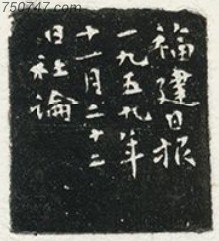 750747.com
福建日报
一九五九年
十一月二十二
日社论